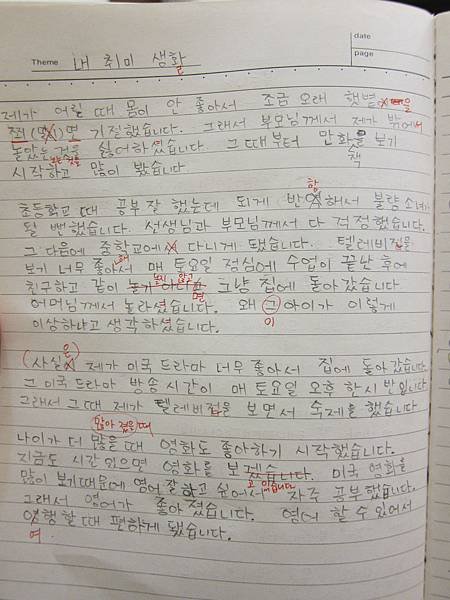 Theme 내 취미 생활
date
page
제가 어릴 때 몸이 안 좋아서 조금 오래 햇볕 을
쬐 면 기절했습니다. 그래서 부모님께서 제가 밖에서
놀았는 것을 싫어하셨습니다. 그때부터 만화 책 보기
시작하고 많이 봤습니다
초등학교 때 공부 잘 했는데 되게 반 항 해서 불량소녀가
될 뻔했습니다. 선생님과 부모님께서 다 걱정했습니다.
그 다음에 중학교에 다니게 됐습니다. 텔레비전을
보기 너무 좋아 해 서 매 토요일 점심에 수업이 끝난 후에
친구하고 같이 놀지 않고 그냥 집에 돌아갔습니다
어머님께서 놀라셨습니다. 왜 그 이 아이가 이렇게
이상하냐고 생각하셨습니다.
(사실 은 제가 미국 드라마 너무 좋아서 집에 돌아갔습니다.
그 미국 드라마 방송 시간이 매 토요일 오후 한시 반입니다
그래서 그때 제가 텔레비전을 보면서 숙제를 했습니다
많아졌을 때
나이가 더 많을 때 영화도 좋아하기 시작했습니다.
지금도 시간 있으면 영화를 보겠습니다. 미국 영화를
고 있습니다
많이 보기때문에 영어 잘 하고 싶어서 자주 공부했습니다.
그래서 영어가 좋아졌습니다. 영어 할 수 있어서
여 행할 때 편하게 됐습니다.